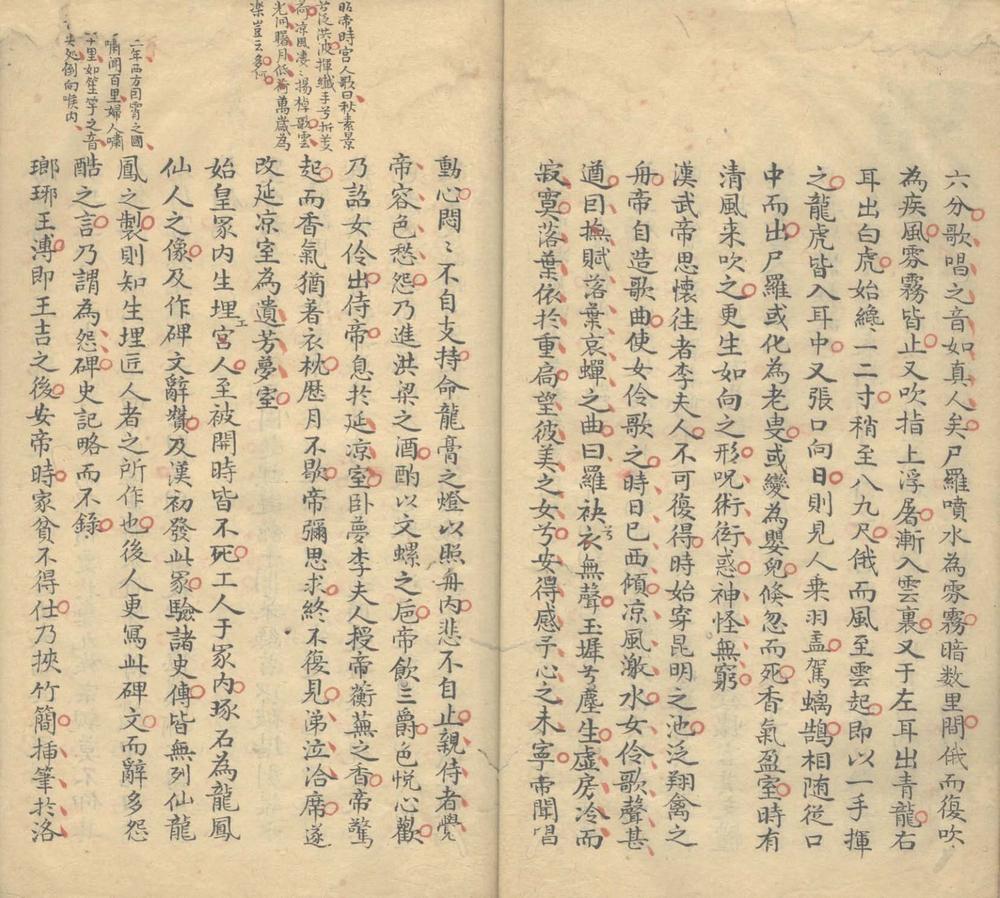 六分歌唱之音如真人矣尸羅噴水為雰霧暗数里間俄而復吹
為疾風雰霧皆止又吹指上浮屠漸入雲裏又于左耳出青龍右
耳出白虎始纔一二寸稍至八九尺俄而風至雲起即以一手揮
之龍虎皆入耳中又張口向日則見人乗羽盖駕螭鵠相随從口
中而出尸羅或化為老叟或變為嬰兒倏忽而死香氣盈室時有
清風来吹之更生如向之形呪術衒惑神怪無窮
漢武帝思懷往者李夫人不可復得時始穿昆明之池泛翔禽之
舟帝自造歌曲使女伶歌之時日已西傾凉風激水女伶歌聲甚
遒曰撫賦落葉哀蟬之曲曰羅袂衣無聲玉墀兮塵生虚房冷而
寂寞落葉依於重扃望彼美之女兮安得感予心之未寧帝聞唱
動心悶〻不自支持命龍膏之燈以照舟内悲不自止親侍者覺
帝容色愁怨乃進洪梁之酒酌以文螺之巵帝飲三爵色悦心歡
乃詔女伶出侍帝息於延凉室卧夢李夫人授帝蘅蕪之香帝驚
起而香氣猶著衣枕歴月不歇帝彌思求終不復見涕泣洽席遂
改延凉室為遺芳夢室
始皇冢内生埋宫人至被開時皆不死工人于冢内琢石為龍鳳
仙人之像及作碑文辭讚及漢初發此冢驗諸史傳皆無列仙龍
鳳之製則知生埋匠人者之所作也後人更寫此碑文而辭多怨
酷之言乃謂為怨碑史記略而不錄
瑯琊王溥即王吉之後安帝時家貧不得仕乃挾竹簡插筆於洛
昭帝時宫人歌曰秋素景
兮泛洪波揮纖手兮折芰
荷凉風凄〻揚棹歌雲
光開曙月低荷萬歲為
樂豈云多
二年西方因霄之國
嘯聞百里婦人嘯
十里如笙竽之音
夾処倒向喉内